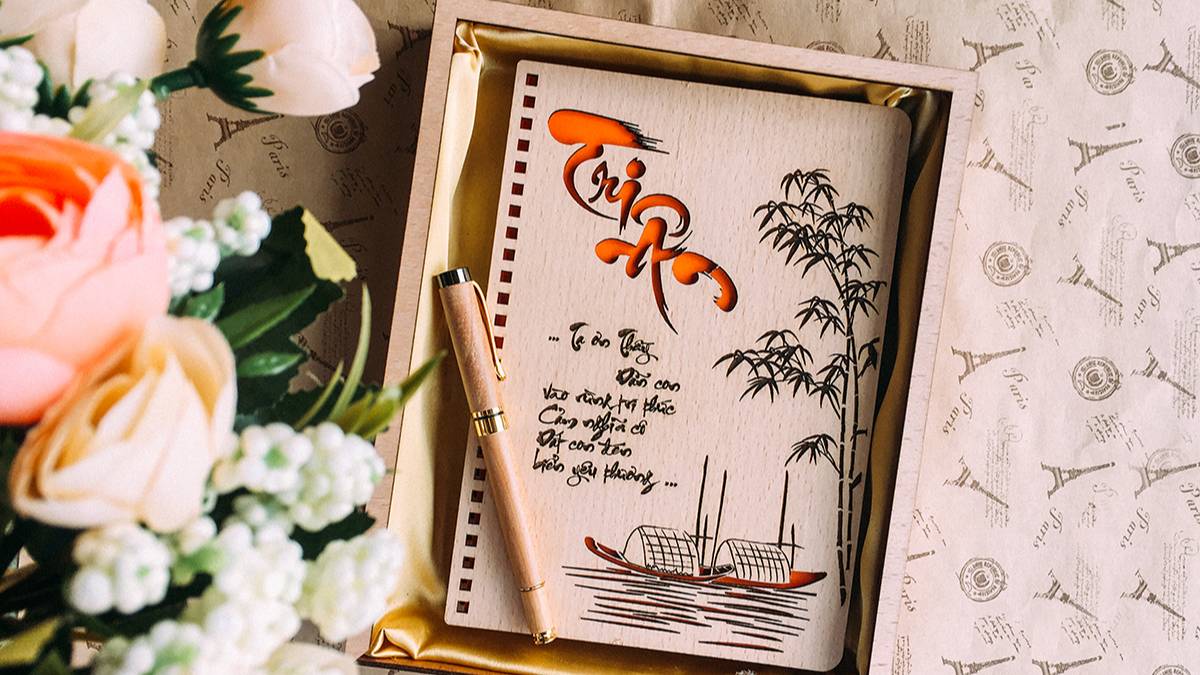 Tri Ân
... Tạ ơn Thầy
Dẫn con
vào rừng tri thức
Cảm nghĩa cô
Dắt con đến
biển yêu thương ...
Paris
Paris
Paris
Paris
Paris
Paris
Paris
Paris